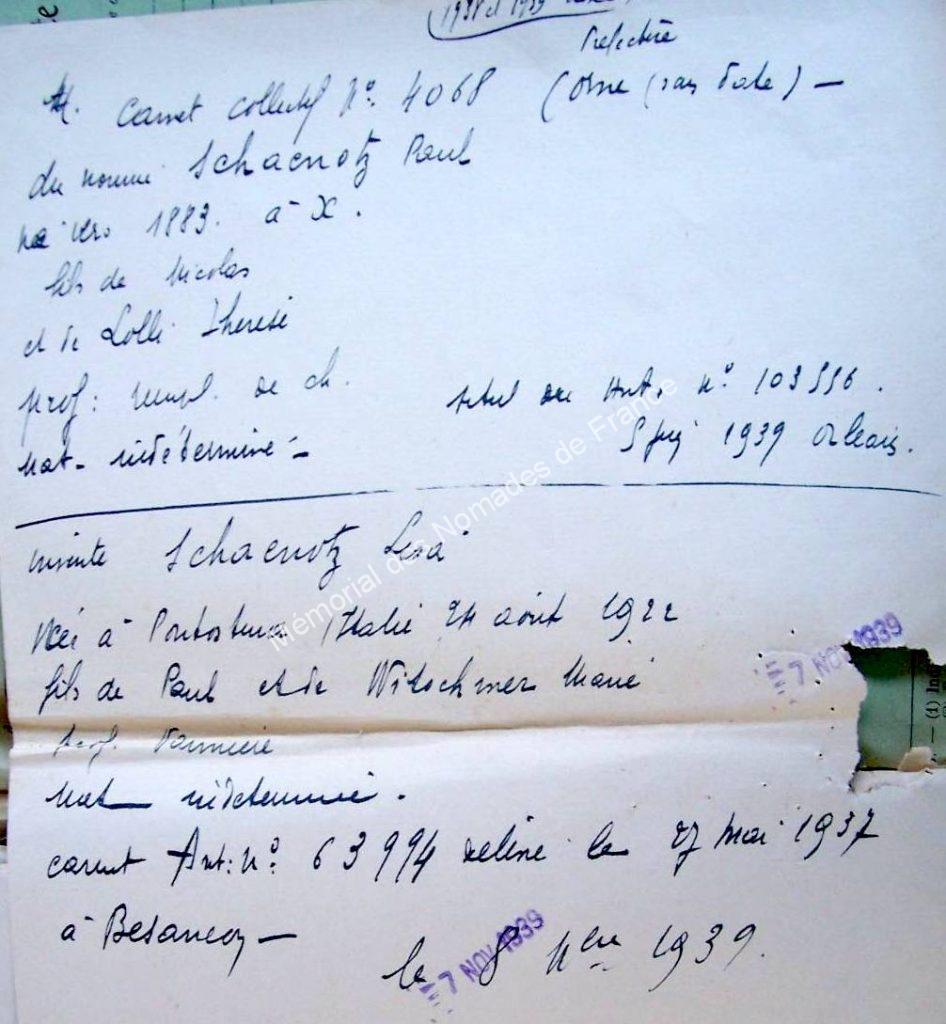 (1938 et 1939
Prefecture
Carnet Collectif N° 4068 (Orne (sans date) —
du nommé Schaenotz Paul
né vers 1883. à X.
fils de Nicolas
et de Lolli Therese
prof: rempl. de ch.
titul du Ant. N° 103556.
nat- indéterminé -
5 juin 1939 Orleans.
Schaenotz Lesa
Née à Italie 24 août 1922
fils de Paul et de Witschmer Marie
7 NOV 1939
prof. Vannière
Nat indéterminé.
carnet Ant: N° 63994 délivré le 27 Mai 1937
à Besançon —
7 NOV 1939
le 8 Nbre 1939.
Mémorial des Nomades de France